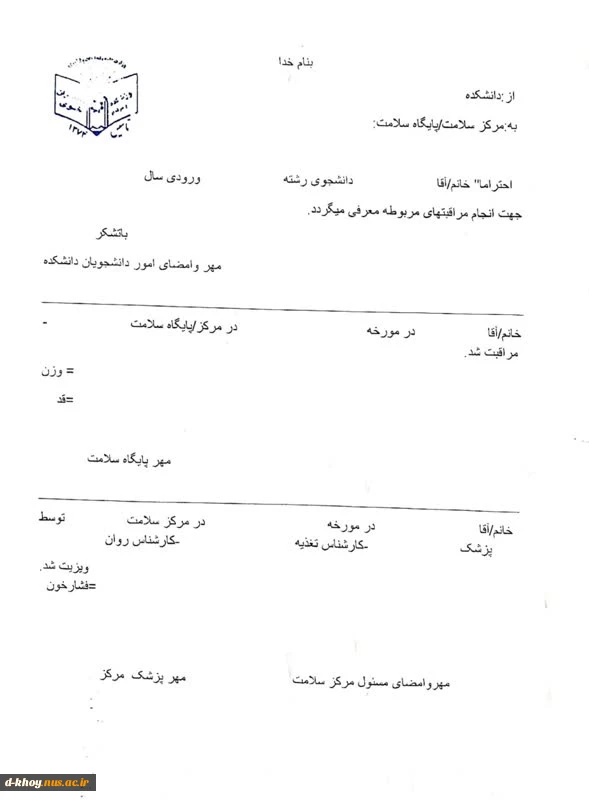 بنام خدا
۱۳۷۲
از :دانشکده
به:مرکز سلامت/پایگاه سلامت:
احتراما" خانم/آقا دانشجوی رشته ورودی سال
جهت انجام مراقبتهای مربوطه معرفی میگردد.
باتشکر
مهر وامضای امور دانشجویان دانشکده
خانم/آقا در مورخه در مرکز/پایگاه سلامت -
مراقبت شد.
= وزن
=قد
مهر پایگاه سلامت
خانم/آقا در مورخه در مرکز سلامت توسط
پزشک -کارشناس تغذیه -کارشناس روان
ویزیت شد.
=فشارخون
مهروامضای مسئول مرکز سلامت مهر پزشک مرکز
d-khoy.nus.ac.ir